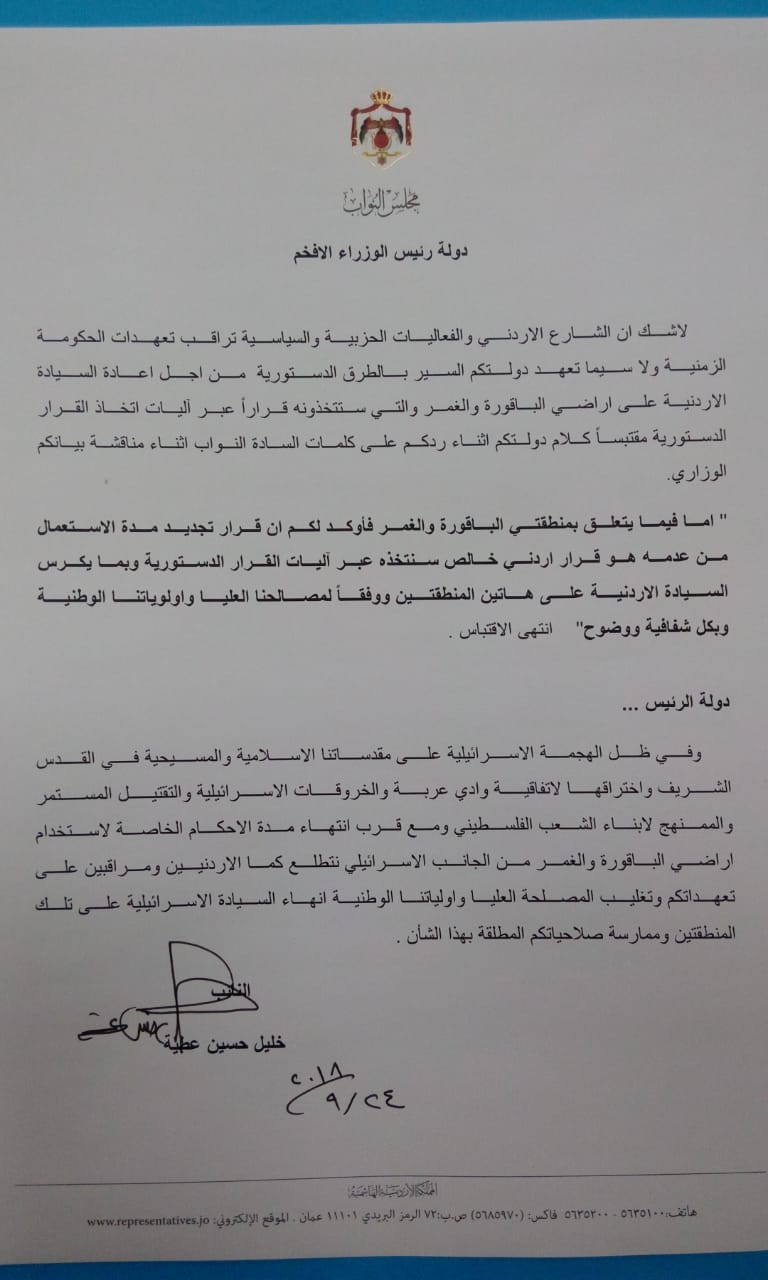 مجلس النواب
دولة رئيس الوزراء الافخم
لاشك ان الشارع الاردني والفعاليات الحزبية والسياسية تراقب تعهدات الحكومة
الزمنية ولا سيما تعهد دولتكم السير بالطرق الدستورية من اجل اعادة السيادة
الاردنية على اراضي الباقورة والغمر والتي ستتخذونه قراراً عبر آليات اتخاذ القرار
الدستورية مقتبساً كلام دولتكم اثناء ردكم على كلمات السادة النواب اثناء مناقشة بيانكم
الوزاري.
" اما فيما يتعلق بمنطقتي الباقورة والغمر فأوكد لكم ان قرار تجديد مدة الاستعمال
من عدمه هو قرار اردني خالص سنتخذه عبر آليات القرار الدستورية وبما يكرس
السيادة الاردنية على هاتين المنطقتين ووفقاً لمصالحنا العليا واولوياتنا الوطنية
وبكل شفافية ووضوح" انتهى الاقتباس .
دولة الرئيس ...
وفي ظل الهجمة الاسرائيلية على مقدساتنا الاسلامية والمسيحية في القدس
الشريف واختراقها لاتفاقية وادي عربة والخروقات الاسرائيلية والتقتيل المستمر
والممنهج لابناء الشعب الفلسطيني ومع قرب انتهاء مدة الاحكام الخاصة لاستخدام
اراضي الباقورة والغمر من الجانب الاسرائيلي نتطلع كما الاردنيين ومراقبين على
تعهداتكم وتغليب المصلحة العليا واولياتنا الوطنية انهاء السيادة الاسرائيلية على تلك
المنطقتين وممارسة صلاحياتكم المطلقة بهذا الشأن .
النائب
خليل حسين عطية
٢٠١٨
٩/٢٤
المملكة الاردنية الهاشمية
هاتف:٥٦٣٥١٠٠ - ٥٦٣٥٢٠٠ فاكس: (٥٦٨٥٩٧٠) ص.ب:٧٢ الرمز البريدي ١١١٠١ عمان . الموقع الإلكتروني: www.representatives.jo